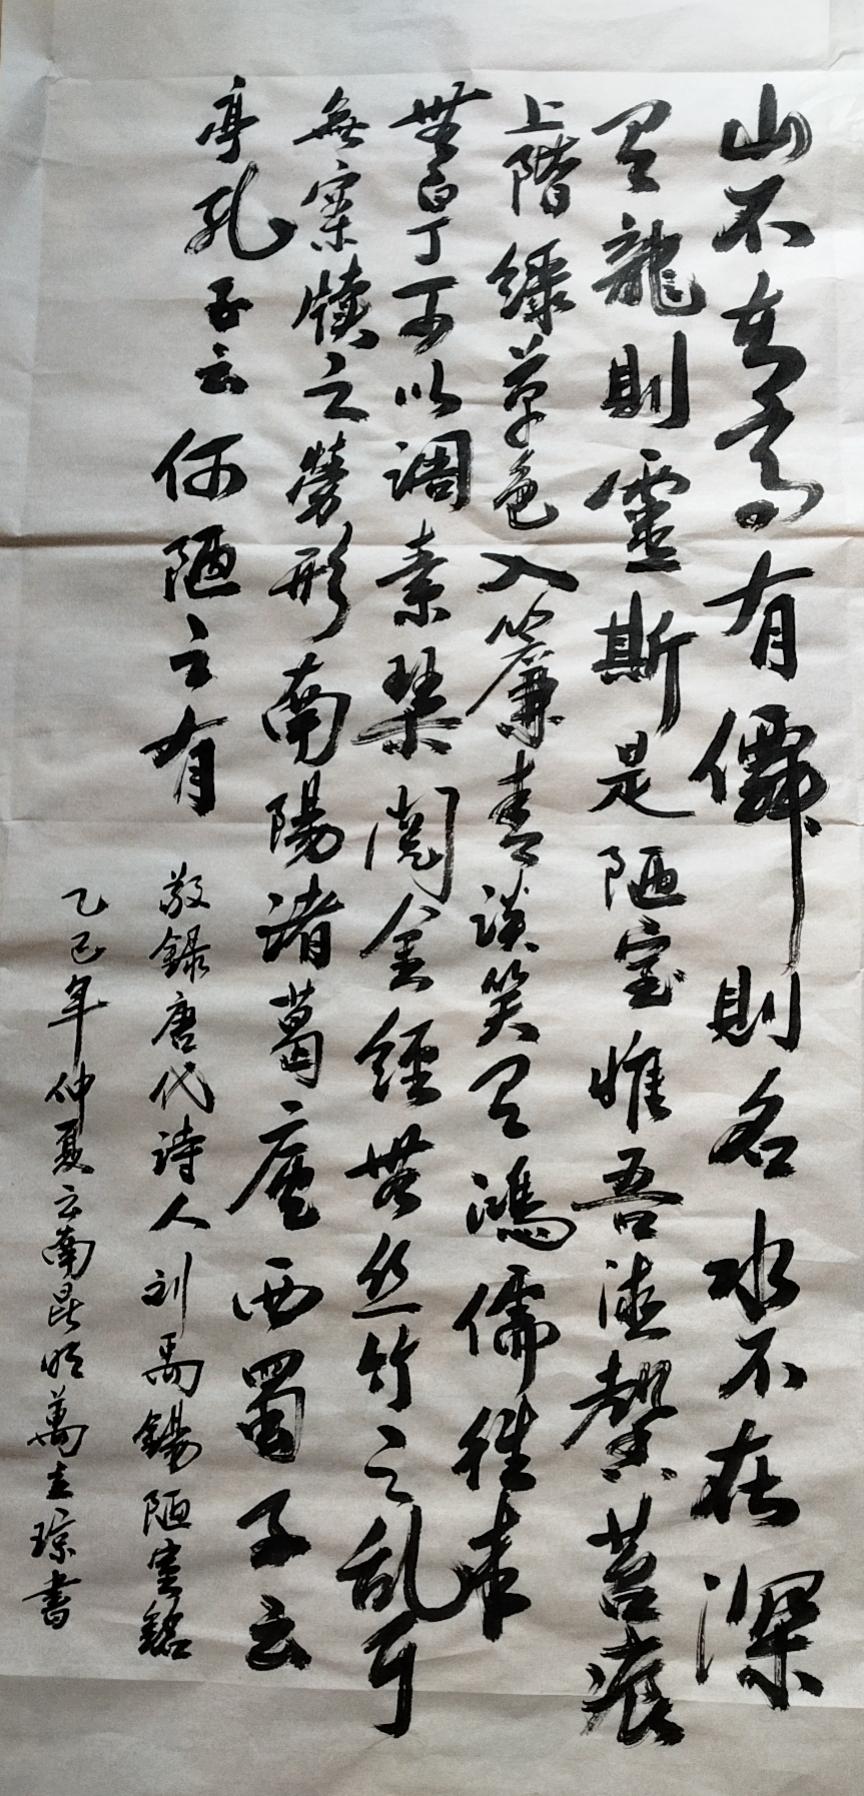 山不在高有僊則名水不在深
有龍則靈斯是陋室惟吾德馨苔痕
上階綠草色入簾青談笑有鴻儒往来
無白丁可以调素琴阅金經無丝竹之乱耳
無案牍之勞形南陽诸葛廬西蜀子云
亭孔子云何陋之有
敬録唐代诗人刘禹錫陋室銘
乙巳年仲夏云南昆明萬立琼書